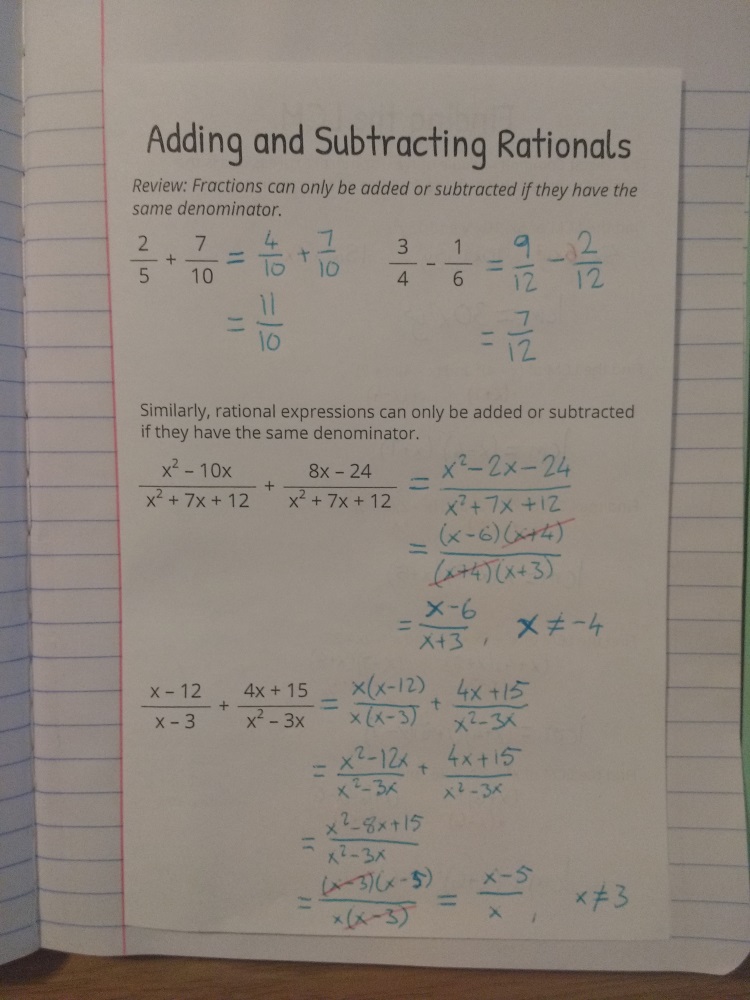 Adding and Subtracting Rationals
Review: Fractions can only be added or subtracted if they have the
same denominator.
2/5 + 7/10 = 4/10 + 7/10
= 11/10
3/4 - 1/6 = 9/12 - 2/12
= 7/12
Similarly, rational expressions can only be added or subtracted
if they have the same denominator.
(x² – 10x)/(x² + 7x + 12) + (8x – 24)/(x² + 7x + 12) = (x²-2x-24)/(x²+7x+12)
= (x-6)(x+4)/(x+4)(x+3)
= (x-6)/(x+3), x ≠ -4
(x – 12)/(x – 3) + (4x + 15)/(x² – 3x) = x(x-12)/x(x-3) + (4x+15)/(x²-3x)
= (x²-12x)/(x²-3x) + (4x+15)/(x²-3x)
= (x²-8x+15)/(x²-3x)
= (x-3)(x-5)/x(x-3) = (x-5)/x, x ≠ 3